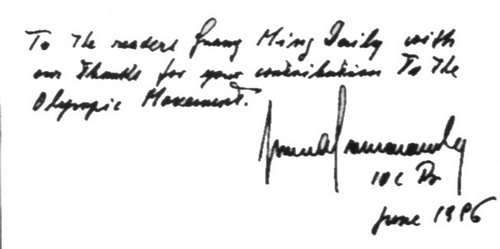 To The readers Guang Ming Daily with
our Thanks for your contribution To The
Olympic Movement.
IOC
June 1986